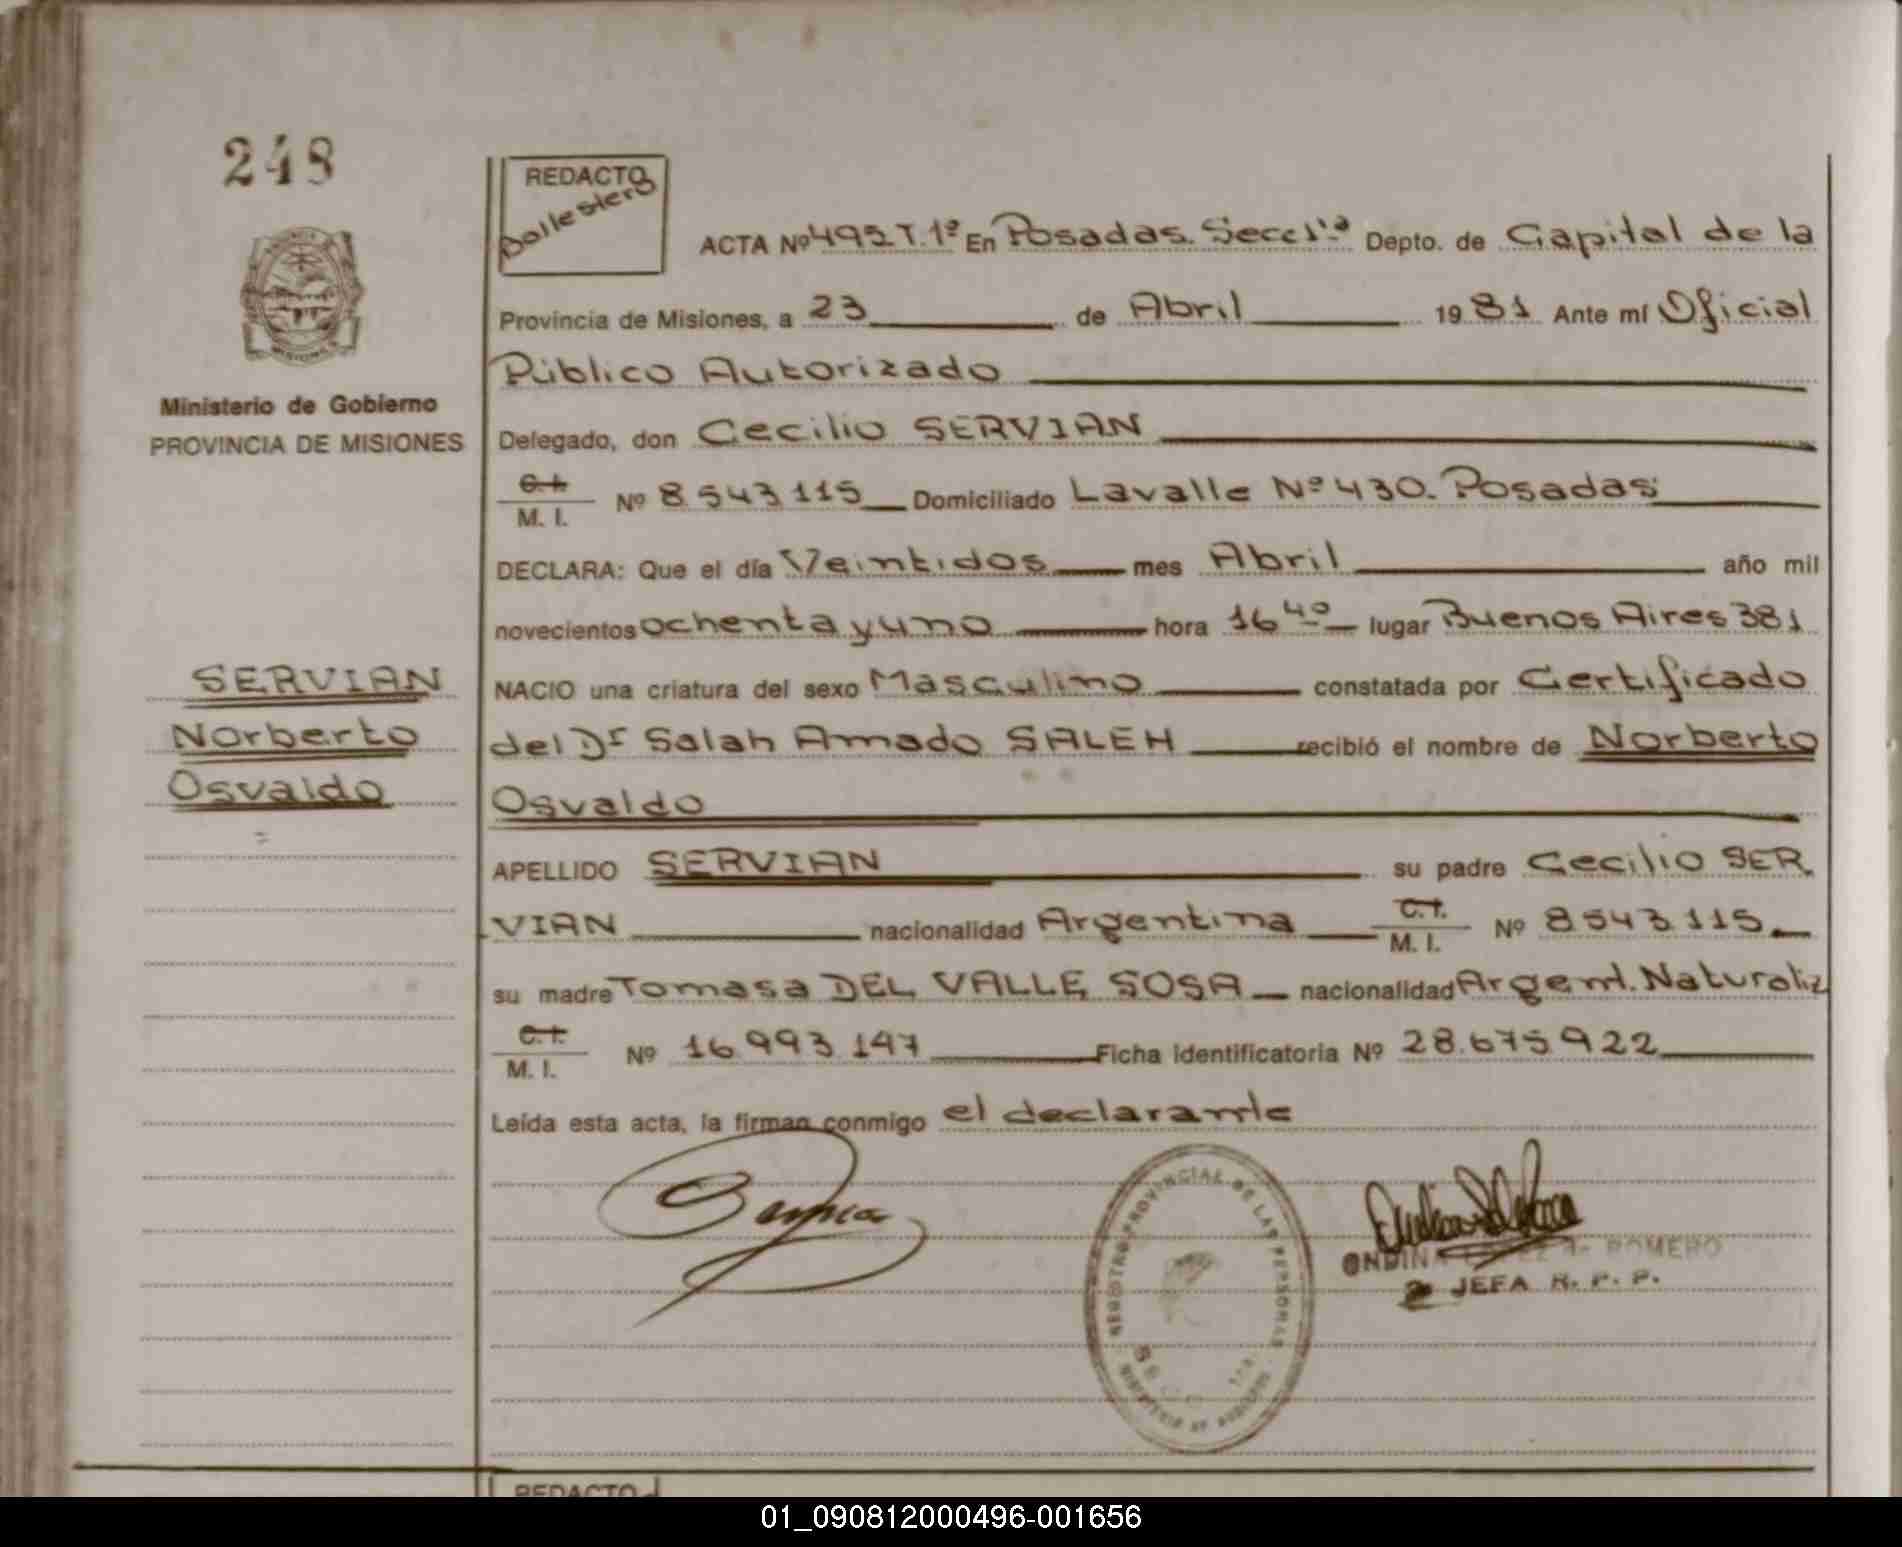 248
REDACTO
Ballestero
ACTA Nº 492 T. 1º En Posadas. Secc 1ª Depto. de Capital de la
Provincia de Misiones, a 23 de Abril 1981 Ante mí Oficial
Público Autorizado
Ministerio de Gobierno
PROVINCIA DE MISIONES
Delegado, don Cecilio SERVIAN
C. I.
M. I. Nº 8.543.115 Domiciliado Lavalle Nº 430. Posadas
DECLARA: Que el día Veintidos mes Abril año mil
novecientos ochenta y uno hora 16 40 lugar Buenos Aires 381
SERVIAN
Norberto
Osvaldo
NACIO una criatura del sexo Masculino constatada por Certificado
del Dr Salah Amado SALEH recibió el nombre de Norberto
Osvaldo
APELLIDO SERVIAN su padre Cecilio SER
VIAN nacionalidad Argentina C. I. M. I. Nº 8.543.115
su madre Tomasa DEL VALLE SOSA nacionalidad Argent. Naturaliz
C. I.
M. I. Nº 16.993.147 Ficha identificatoria Nº 28.675.922
Leída esta acta, la firman conmigo el declarante
REGISTRO PROVINCIAL DE LAS PERSONAS
ROMERO
JEFA R. P. P.
REDACTO
01_090812000496-001656